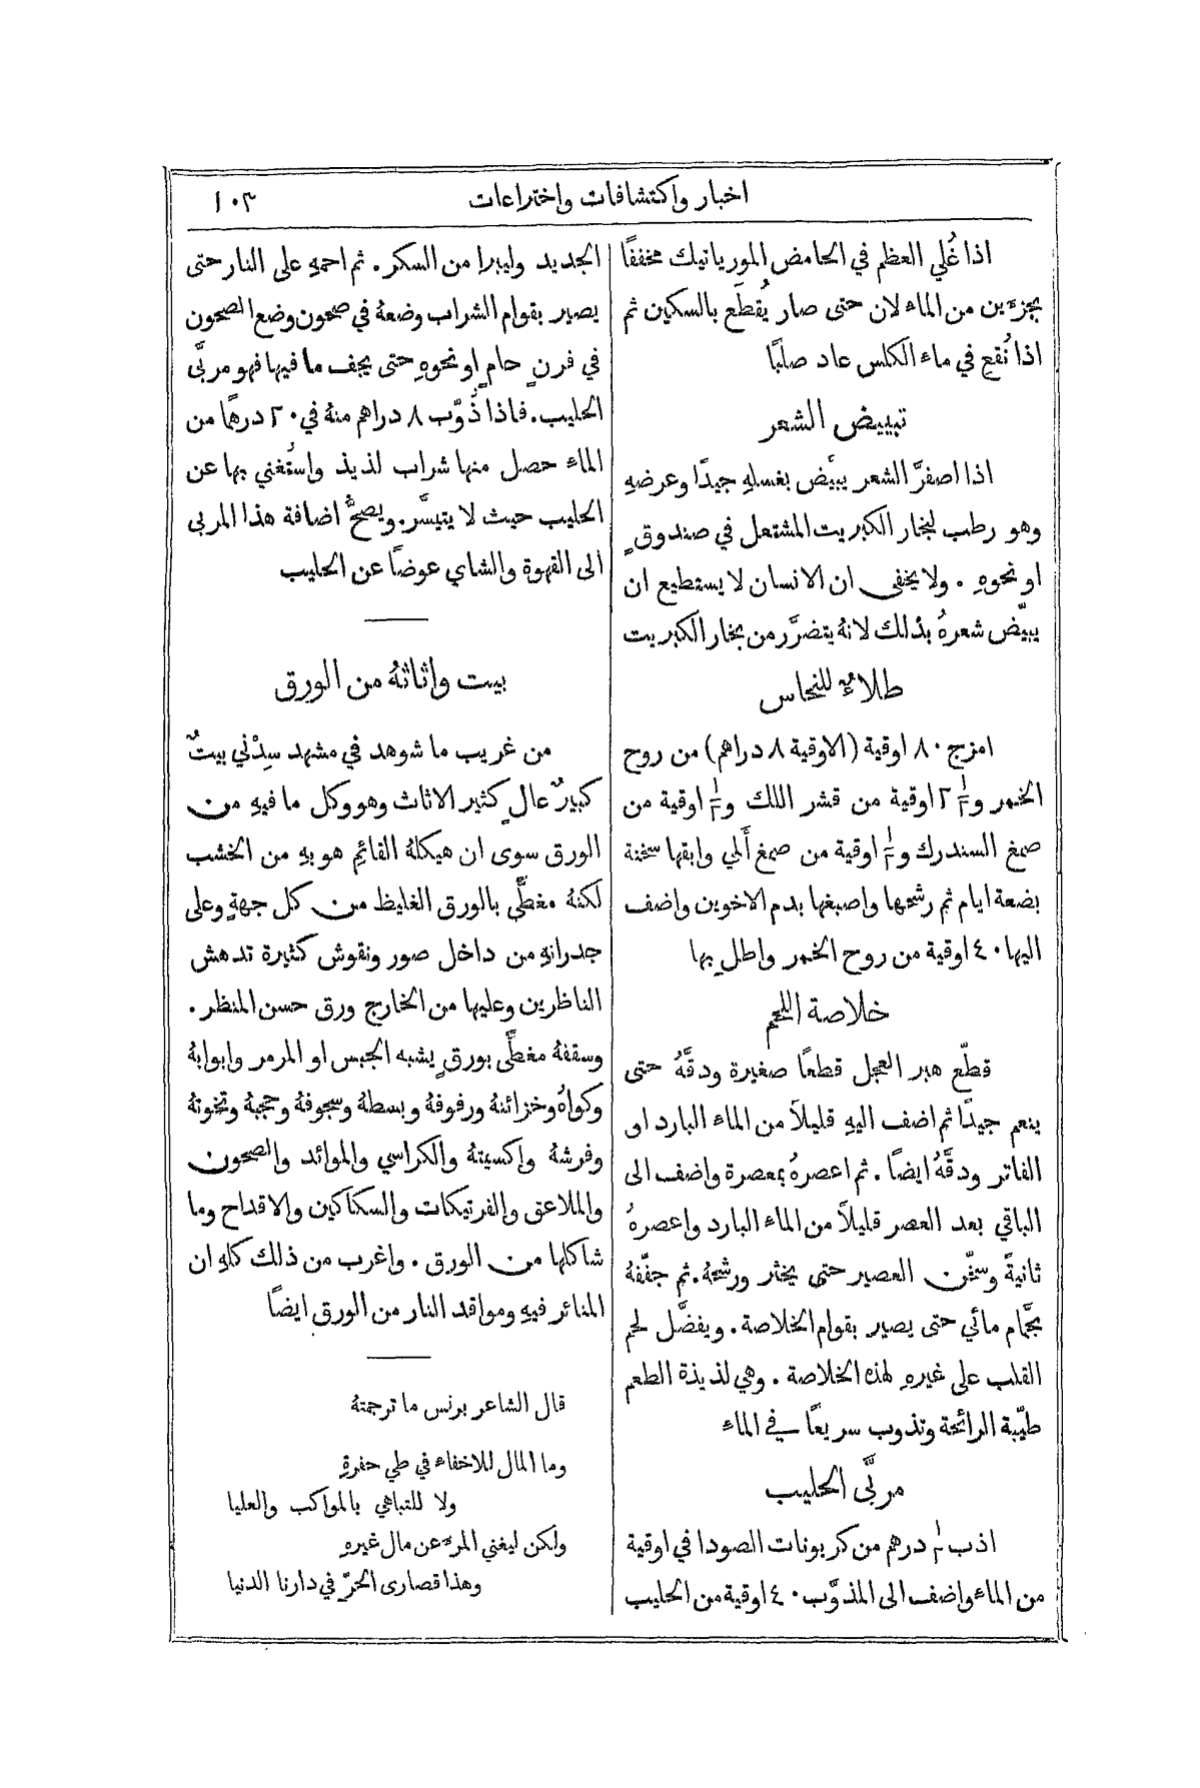 اخبار واكتشافات واختراعات
١٠٣
اذا غُلي العظم في الحامض المورياتيك مخففًا
بجزءين من الماء لان حتى صار يُقطَع بالسكين ثم
اذا نُقع في ماء الكلس عاد صلبًا
تبييض الشعر
اذا اصفرَّ الشعر يبيَّض بغسلهِ جيدًا وعرضهِ
وهو رطب لبخار الكبريت المشتعل في صندوقٍ
او نحوهِ . ولا يخفى ان الانسان لا يستطيع ان
يبيّض شعرهُ بذلك لانهُ يتضرَّر من بخار الكبريت
طلاءٌ للنحاس
امزج ٨٠ اوقية (الاوقية ٨ دراهم) من روح
الخمر و½ ٢ اوقية من قشر اللك و½ اوقية من
صمغ السندرك و½ اوقية من صمغ أَلمي وابقها سخنة
بضعة ايام ثم رشحها واصبغها بدم الاخوين واضف
اليها ٤٠ اوقية من روح الخمر واطلِ بها
خلاصة اللحم
قطّع هبر العجل قطعًا صغيرة ودقَّهُ حتى
ينعم جيدًا ثم اضف اليهِ قليلًا من الماء البارد او
الفاتر ودقَّهُ ايضًا . ثم اعصرهُ بمعصرة واضف الى
الباقي بعد العصر قليلًا من الماء البارد واعصرهُ
ثانيةً وسخّن العصير حتى يخثر ورشحهُ. ثم جفّفهُ
بحمَّام مائي حتى يصير بقوام الخلاصة. ويفضَّل لحم
القلب على غيرهِ لهذه الخلاصة . وهي لذيذة الطعم
طيّبة الرائحة وتذوب سريعًا في الماء
مربَّى الحليب
اذب درهم من كربونات الصودا في اوقية
من الماء واضف الى المذوَّب ٤٠ اوقية من الحليب
الجديد وليبرا من السكر. ثم احمهِ على النار حتى
يصير بقوام الشراب وضعهُ في صحون وضع الصحون
في فرنٍ حامٍ او نحوهِ حتى يجف ما فيها فهو مربَّى
الحليب. فاذا ذُوّب ٨ دراهم منهُ في ٢٠ درهمًا من
الماء حصل منها شراب لذيذ واستُغني بها عن
الحليب حيث لا يتيسَّر. ويصحُّ اضافة هذا المربى
الى القهوة والشاي عوضًا عن الحليب
بيت واثاثهُ من الورق
من غريب ما شوهد في مشهد سِدْني بيتٌ
كبيرٌ عالٍ كثير الاثاث وهو وكل ما فيهِ من
الورق سوى ان هيكلهُ القائم هو بهِ من الخشب
لكنهُ مغطًّى بالورق الغليظ من كل جهةٍ وعلى
جدرانهِ من داخل صور ونقوش كثيرة تدهش
الناظرين وعليها من الخارج ورق حسن المنظر .
وسقفهُ مغطًّى بورقٍ يشبه الجبس او المرمر وابوابهُ
وكواهُ وخزائنهُ ورفوفهُ وبسطهُ وسجوفهُ وحجبهُ وتخوتهُ
وفرشهُ واكسيتهُ والكراسي والموائد والصحون
والملاعق والفرتيكات والسكاكين والاقداح وما
شاكلها من الورق . واغرب من ذلك كلهِ ان
المنائر فيهِ ومواقد النار من الورق ايضًا
قال الشاعر برنس ما ترجمتهُ
وما المال للاخفاء في طي حفرةٍ
ولا للتباهي بالمواكب والعليا
ولكن ليغني المرء عن مال غيرهِ
وهذا قصارى الحرّ في دارنا الدنيا